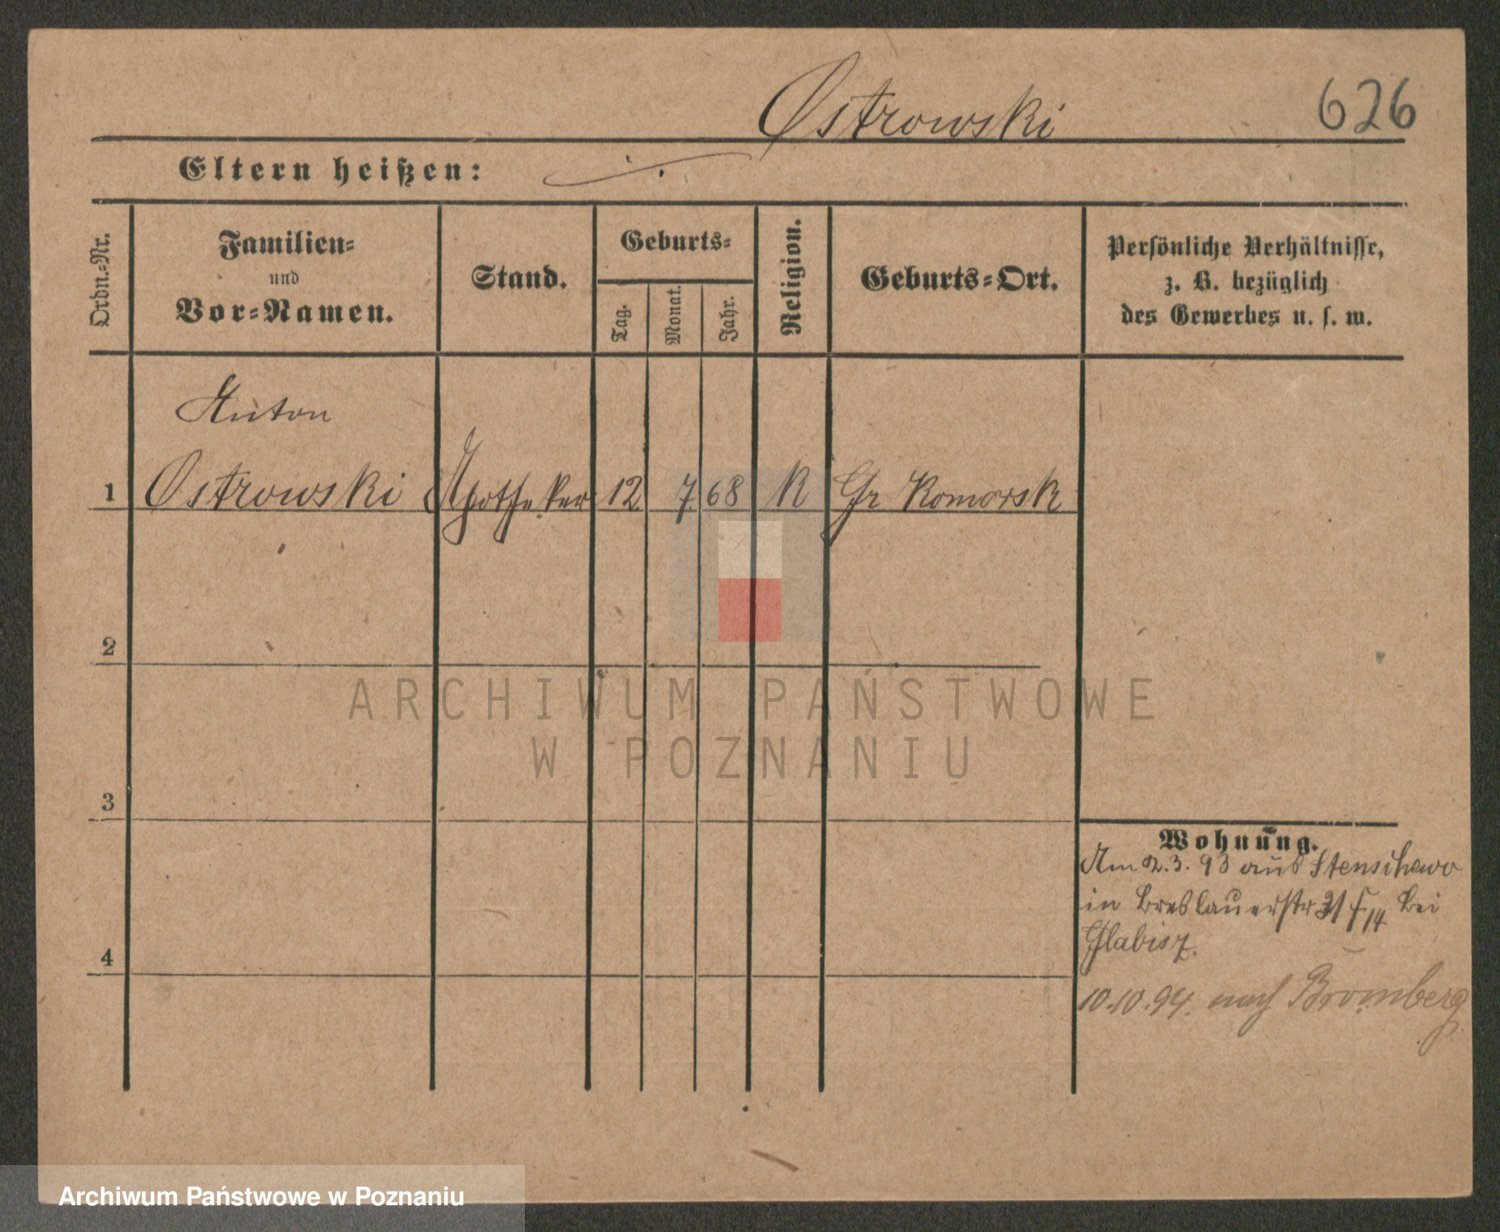 Ostrowski
626
Eltern heißen: ./.
Ordn.-Nr.
Familien-
und
Vor-Namen.
Stand.
Geburts-
Tag.
Monat.
Jahr.
Religion.
Geburts-Ort.
Persönliche Verhältnisse,
z. B. bezüglich
des Gewerbes u. s. w.
Anton
1 Ostrowski Apotheker 12. 7. 68 K Gr Komorsk
2
ARCHIWUM PAŃSTWOWE
W POZNANIU
3
4
Wohnung.
Am 2.3.93 aus Stenschewo
in Breslauerstr 31 bei
Glabisz.
10.10.94. nach Bromberg
Archiwum Państwowe w Poznaniu